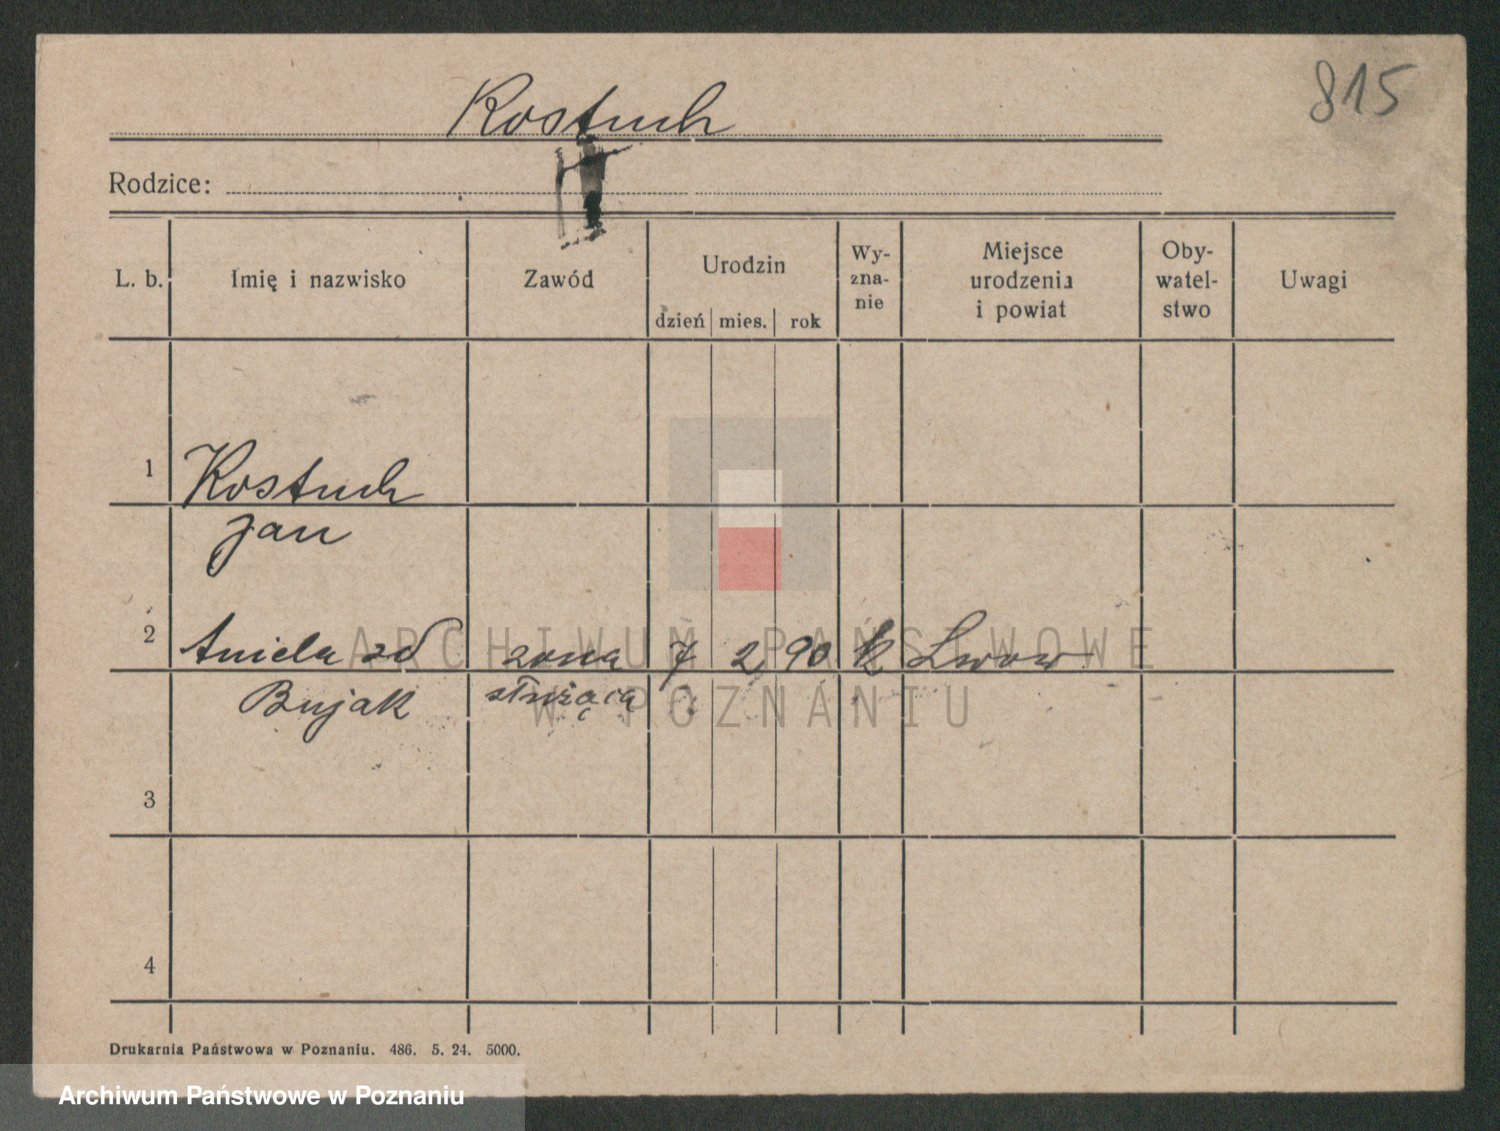 815
Kostuch
Rodzice:
L. b. Imię i nazwisko Zawód Urodzin dzień mies. rok Wy-zna-nie Miejsce urodzenia i powiat Oby-watel-stwo Uwagi
1 Kostuch
Jan
2 Aniela zd żona 7 2 90 k Lwow
Bujak służąca
3
4
Drukarnia Państwowa w Poznaniu. 486. 5. 24. 5000.
ARCHIWUM PAŃSTWOWE
W POZNANIU
Archiwum Państwowe w Poznaniu